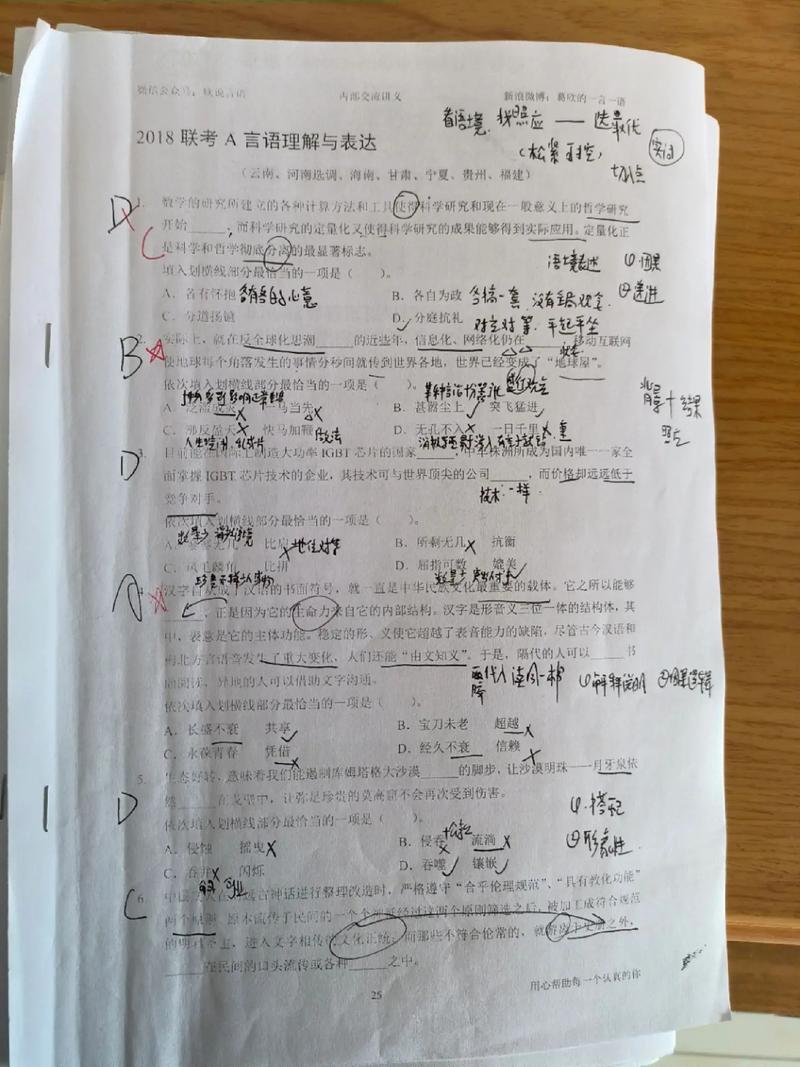 微信公众号：欣说言语 内部交流讲义 新浪微博：葛欣的一言一语
看语境、找照应 —— 选最优
2018 联考 A 言语理解与表达
（松紧 实词
切入点
（云南、河南选调、海南、甘肃、宁夏、贵州、福建）
D 1. 数学的研究所建立的各种计算方法和工具使得科学研究和现在一般意义上的哲学研究
C 开始______，而科学研究的定量化又使得科学研究的成果能够得到实际应用。定量化正
是科学和哲学彻底分离的最显著标志。
语境表述 ①因果
填入划横线部分最恰当的一项是（ ）。
②递进
A、各有怀抱 各有各的心意 B、各自为政 各搞一套，没有全局观念
C、分道扬镳 D、分庭抗礼 对立对等、平起平坐
B 2. 实际上，就在反全球化思潮______的近些年，信息化、网络化仍在______，移动互联网
使地球每个角落发生的事情分秒间就传到世界各地，世界已经变成了“地球屋”。
依次填入划横线部分最恰当的一项是（ ）。
A、泛滥成灾 一马当先 B、甚嚣尘上 突飞猛进
C、沸反盈天 快马加鞭 D、无孔不入 一日千里
背景+结果
D 3. 目前能在国际上制造大功率 IGBT 芯片的国家______，中车株洲所成为国内唯一一家全
面掌握 IGBT 芯片技术的企业，其技术可与世界顶尖的公司______，而价格却远远低于
竞争对手。
技术一样
依次填入划横线部分最恰当的一项是（ ）。
A、寥寥无几 比肩 地位对等 B、所剩无几 抗衡
C、凤毛麟角 比拼 D、屈指可数 媲美
A 4. 汉字自从成了汉语的书面符号，就一直是中华民族文化最重要的载体。它之所以能够
______，正是因为它的生命力来自它的内部结构。汉字是形音义三位一体的结构体，其
中，表意是它的主体功能。稳定的形、义使它超越了表音能力的缺陷，尽管古今汉语和
南北方言语音发生了重大变化，人们还能“由文知义”。于是，隔代的人可以______书
面阅读，异地的人可以借助文字沟通。
两代人读同一本书 ①解释说明
依次填入划横线部分最恰当的一项是（ ）。
A、长盛不衰 共享 B、宝刀未老 超越
C、永葆青春 凭借 D、经久不衰 信赖
5. 生态好转，意味着我们能遏制库姆塔格大沙漠______的脚步，让沙漠明珠——月牙泉依
D 然______在戈壁中，让弥足珍贵的莫高窟不会再次受到伤害。
①搭配
依次填入划横线部分最恰当的一项是（ ）。
②形象性
A、侵蚀 摇曳 B、侵吞 流淌
C、吞并 闪烁 D、吞噬 镶嵌
C 6. 中国文人在对远古神话进行整理改造时，严格遵守“合乎伦理规范”、“具有教化功能”
两个原则。原本流传于民间的一个个神话经过这两个原则筛选之后，被加工成符合规范
的明君圣主，进入文字相传的文化正统；而那些不符合伦常的，就
______在民间的口头流传或各种______之中。
25
用心帮助每一个认真的你